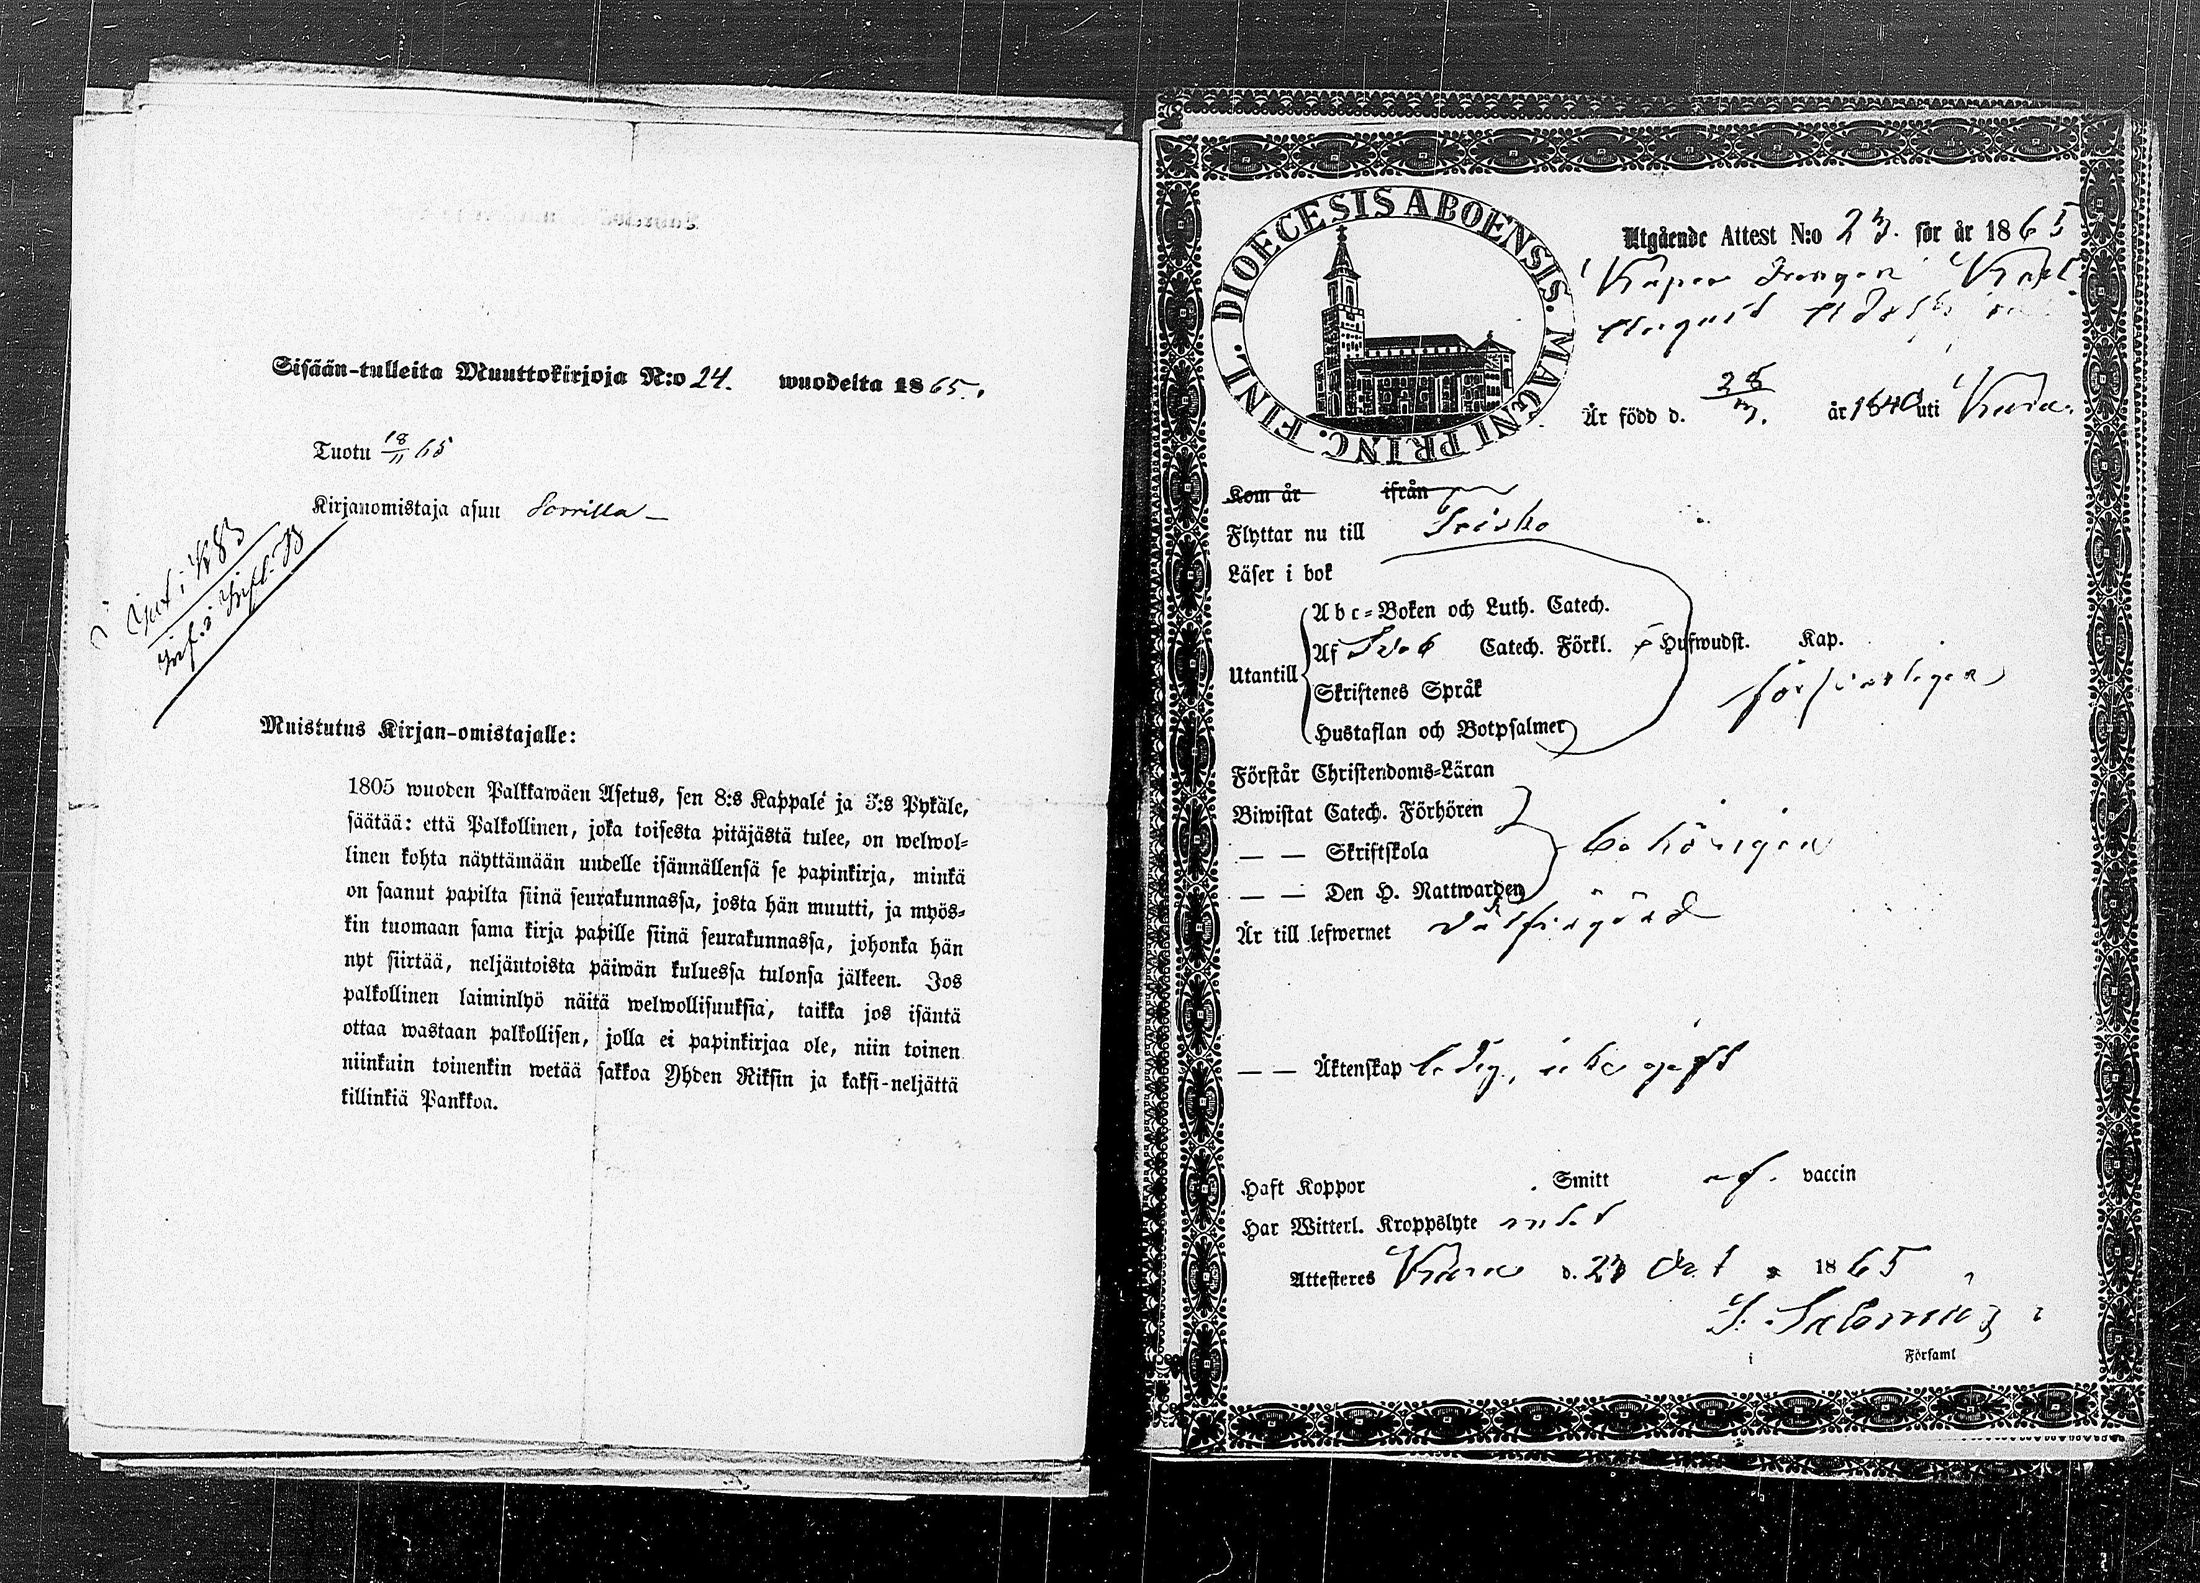 Sisään-tulleita Muuttokirjoja N:o 24. wuodelta 1865.
Tuotu 18/11 65
Kirjanomistaja asuu Sorrilla
Muistutus Kirjan-omistajalle:
1805 wuoden Palkkawäen Asetus, sen 8:s Kappale ja 5:s Pykäle,
säätää: että Palkollinen, joka toisesta pitäjästä tulee, on welwol-
linen kohta näyttämään uudelle isännällensä se papinkirja, minkä
on saanut papilta siinä seurakunnassa, josta hän muutti, ja myös-
kin tuomaan sama kirja papille siinä seurakunnassa, johonka hän
nyt siirtää, neljäntoista päiwän kuluessa tulonsa jälkeen. Jos
palkollinen laiminlyö näitä welwollisuuksia, taikka jos isäntä
ottaa wastaan palkollisen, jolla ei papinkirjaa ole, niin toinen
niinkuin toinenkin wetää sakkoa Yhden Riksin ja kaksi-neljättä
killinkiä Pankkoa.
DIOECESIS ABOENSIS. MAGNI PRINC. FINL.
Utgående Attest N:o 23. för år 1865
Drengen Karl
August
Är född d. 28/3. år 1840 uti
Kom år ifrån
Flyttar nu till Teisko
Läser i bok
Abc-Boken och Luth. Catech.
Af Sveb Catech. Förkl. Hufwudst. Kap.
Utantill
Skriftenes Språk
försvarligen
Hustaflan och Botpsalmer
Förstår Christendoms-Läran
Biwistat Catech. Förhören
— — Skriftskola behörigen
— — Den H. Nattwarden
Är till lefwernet välfrägdad
— — Äktenskap ledig, obegift
Haft Koppor Smitt af vaccin
Har Witterl. Kroppslyte intet
Attesteres d. 23 Oct 1865
S. Salenius
i Församl